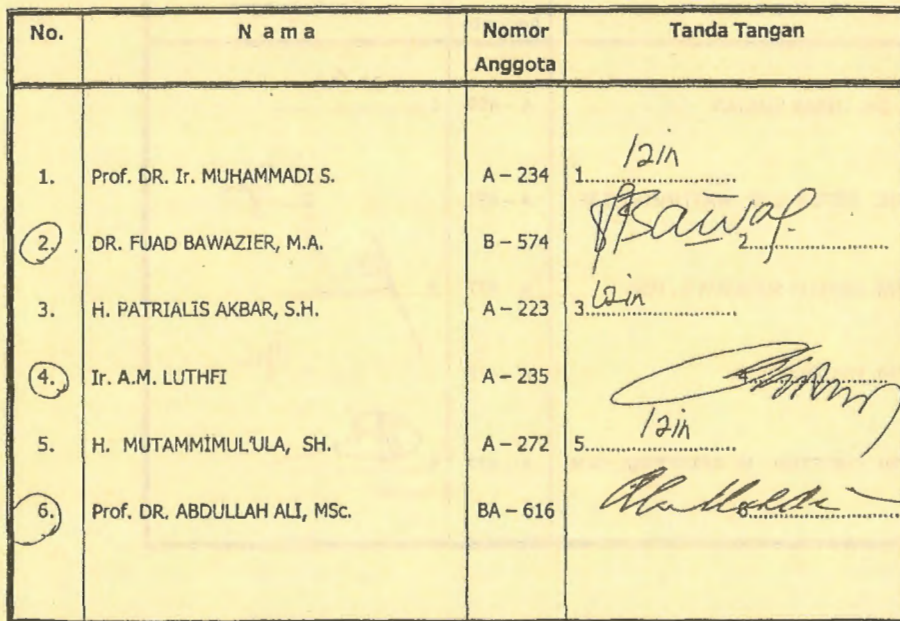 No. N a m a Nomor Anggota Tanda Tangan
1. Prof. DR. Ir. MUHAMMADI S. A – 234 1. Izin
2. DR. FUAD BAWAZIER, M.A. B – 574 2.
3. H. PATRIALIS AKBAR, S.H. A – 223 3. Izin
4. Ir. A.M. LUTHFI A – 235 4.
5. H. MUTAMMIMUL'ULA, SH. A – 272 5. Izin
6. Prof. DR. ABDULLAH ALI, MSc. BA – 616 6.